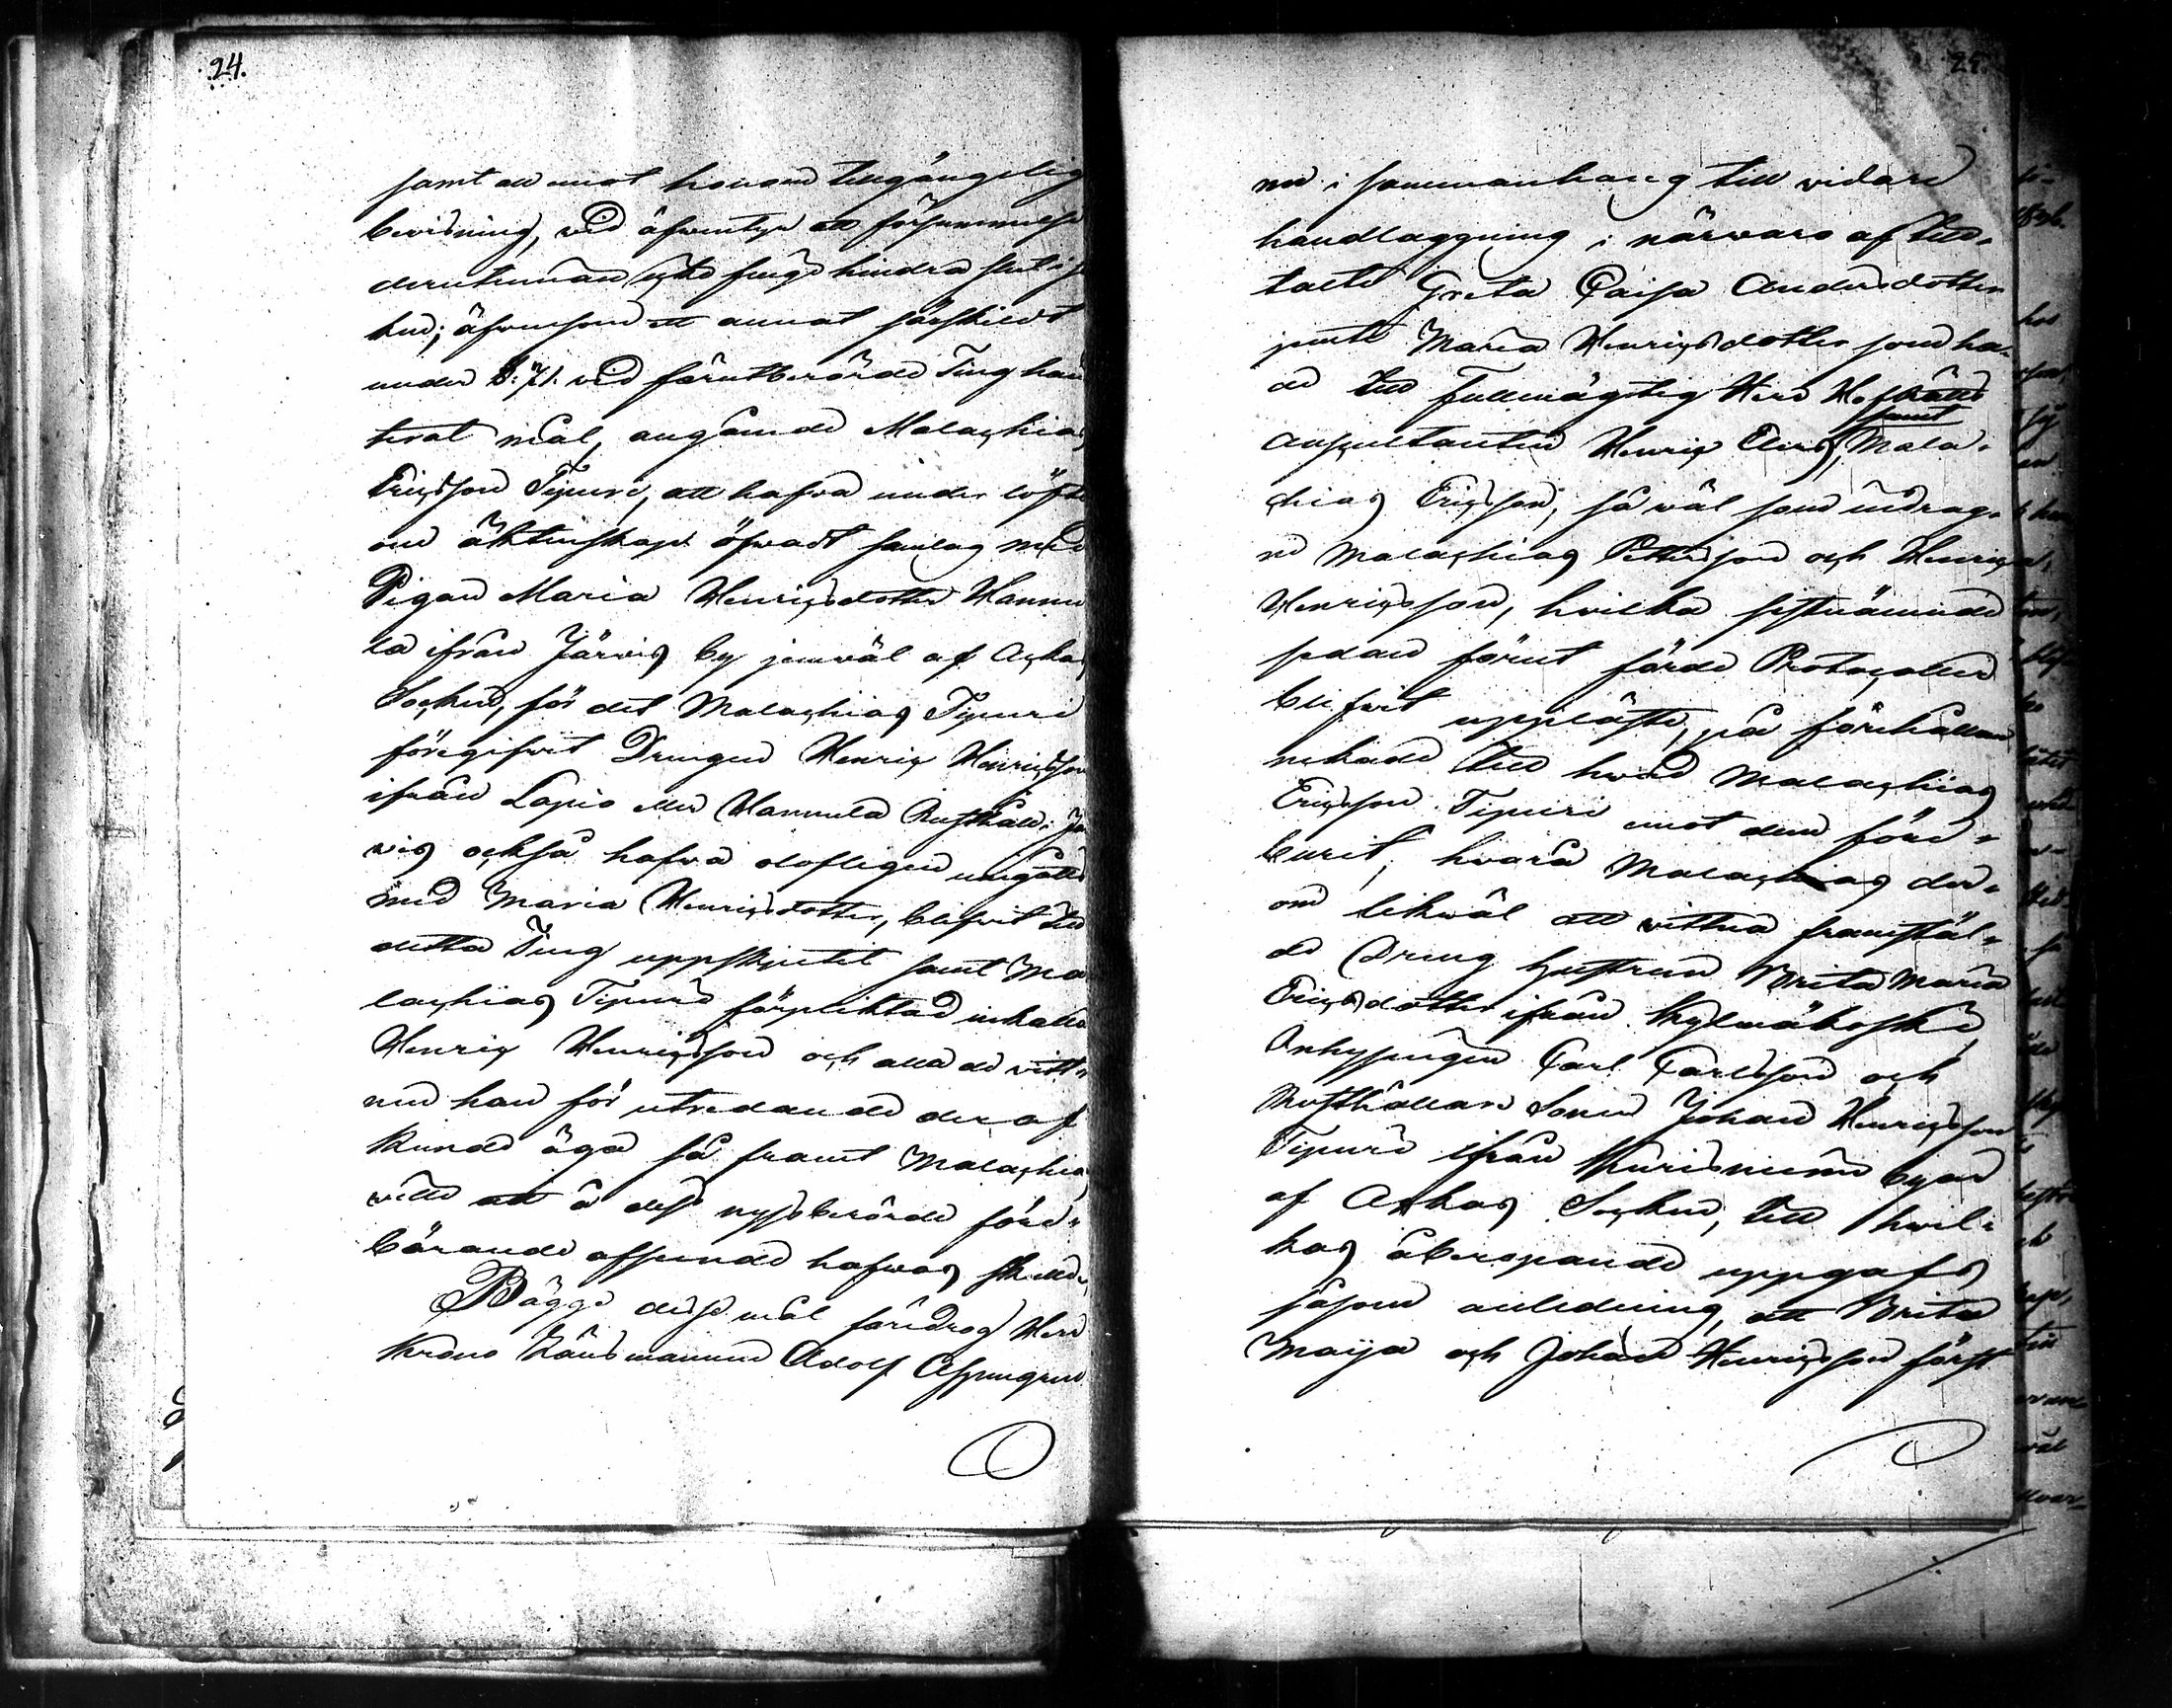 24.
samt all emot honom tillgängelig
bevisning, wid äfwentyr att försummelse
derutinnan icke finge hindra slut i sa
ken; äfwensom ett annat särskildt
under §: 71. wid förutberörde Ting han
terat mål, angående Malachias
Ericsson Tipuri, att hafva under löfte
om äktenskap öfwadt samlag med
Pigan Maria Henricsdotter Hannu
la ifrån Järvis by jemwäl af Ackas
Socken, för det Malachias Tipuri
föregifvit Drengen Henric Henricsson
ifrån Lapio eller Hannula Rusthåll i Jär
wis också hafva olofligen umgåtts
med Maria Henricsdotter, blifvit till
detta Ting uppskjutit samt Ma
lachias Tipuri förpliktad inkalla
Henric Henricsson och alla de witt-
nen han för utredande deraf
kunde äga så framt Malachias
wille att å dess nyssberörde före-
bärande afseende hafwas skulle.
Bägge desse mål företrog Herr
Krono Länsmannen Adolf Aspengren
25.
nu i sammanhang till widare
handläggning i närwaro af till-
talte Greta Caisa Andersdotter
jemte Maria Henricsdotter som ha-
de till fullmägtig Herr Hofrätts
Auscultanten Henric Elers, samt Mala-
chias Ericsson, så wäl som indrag-
ne Malachias Pettersson och Henric
Henricsson, hvilka sistnämnde
sedan förut förde Protocoller
blifvit uppläste, på förehållan
nekade till hwad Malachias
Ericsson Tipuri emot dem före-
burit, hvarå Malachias der-
om likwäl att wittna framstäl-
de Dreng hustrun Brita Maria
Ericsdotter ifrån Kylmäkoski,
Inhysingen Carl Carlsson och
Rusthållare Sonen Johan Henricsson
Tipuri ifrån Kurisniemi byar
af Ackas Socken, till hwil-
kas åberopande uppgafs
såsom anledning, att Brita
Maija och Johan Henricsson först